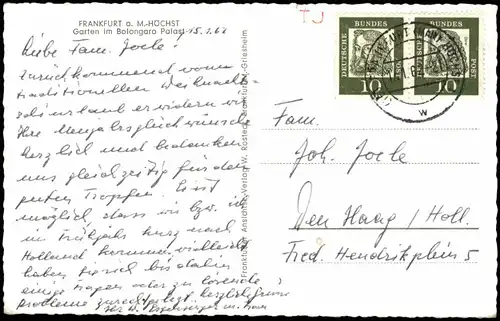 FRANKFURT a. M.-HÖCHST
Garten im Bolongaro Palast
15.1.62
Liebe Fam. Jocle!
Zurückkommend vom
traditionellen Weihnachts-
urlaub erwidern wir
Ihre Neujahrsglückwünsche
herzlich und bedanken
uns gleichzeitig für den
guten Tropfen. Es ist
möglich, dass wir bzw. ich
im Frühjahr kurz nach
Holland kommen, vielleicht
haben Sie sich bis dahin
einige Fragen oder zu lösende
Probleme zurechtgelegt. herzliche Grüsse
Ihr W. u. Frau
Frankfurter Ansichten-Verlag W. Rösted, Frankfurt/M.-Griesheim
TJ
DEUTSCHE BUNDES POST
10
DEUTSCHE BUNDES POST
10
FRANKFURT (MAIN) HÖCHST
w
Fam.
Joh. Jocle
Den Haag / Holl.
Fred. Hendrikplein 5